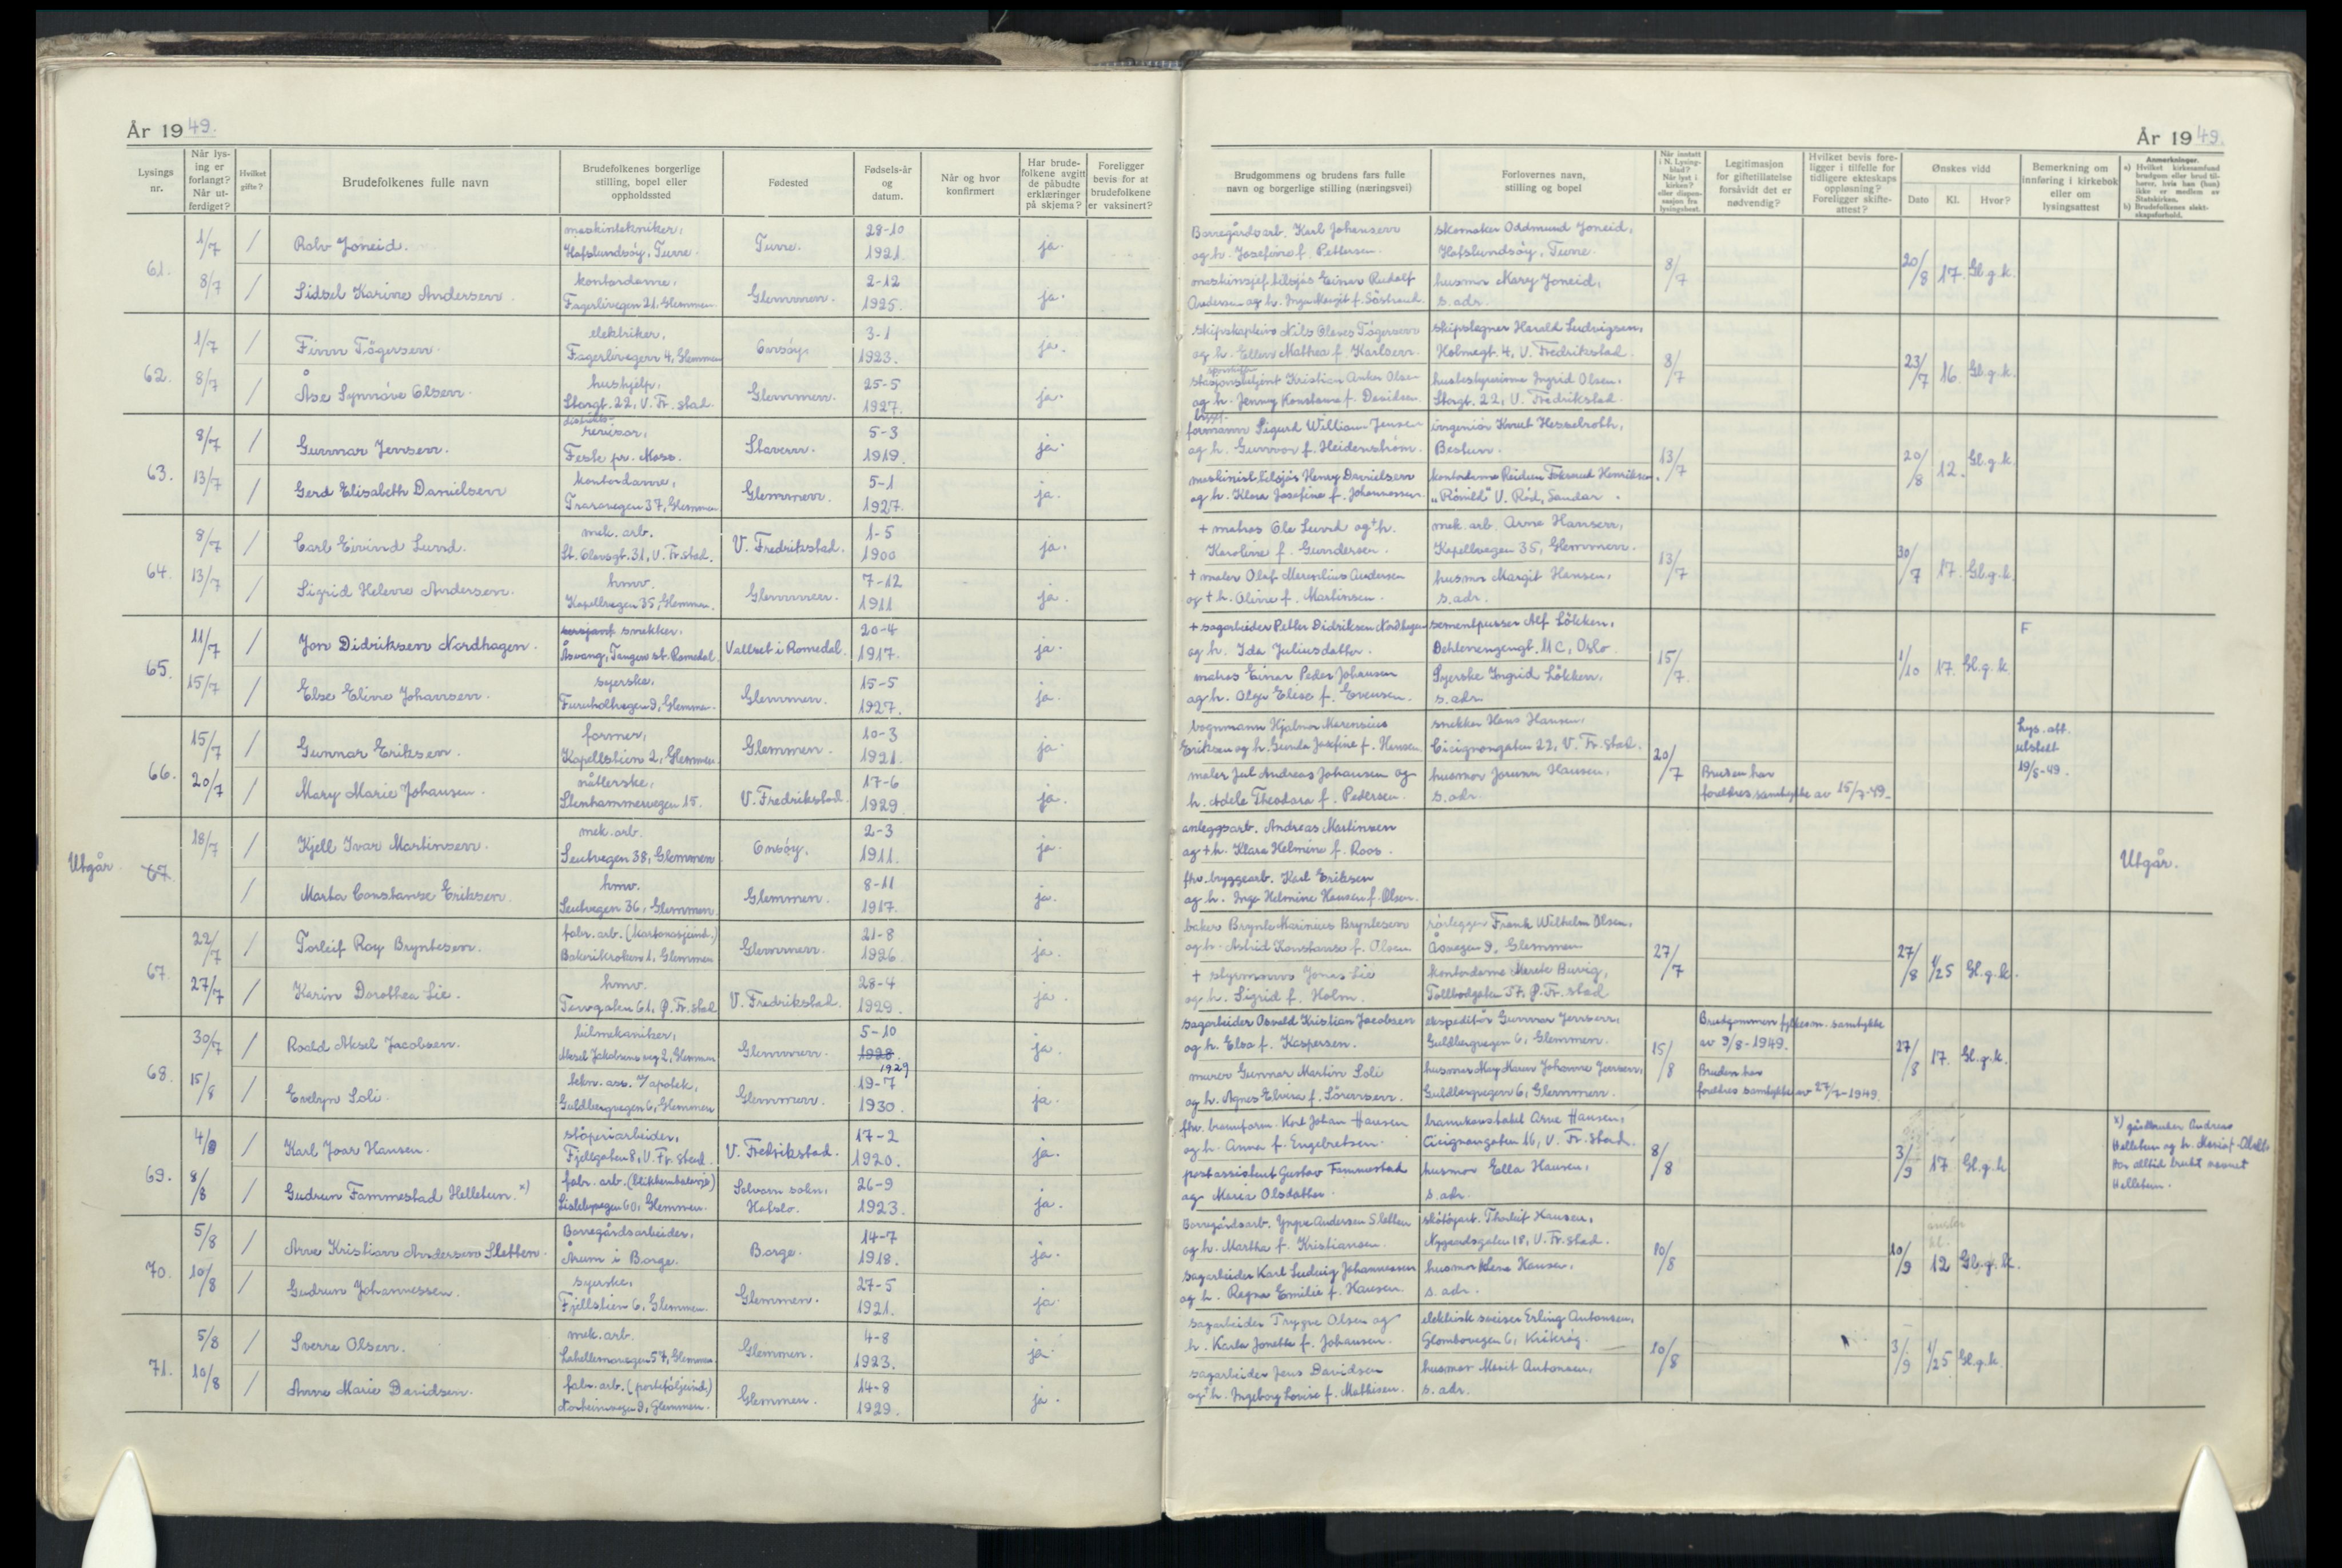 År 1949.
Lysings nr.
Når lysing er forlangt? Når utferdiget?
Hvilket gifte?
Brudefolkenes fulle navn
Brudefolkenes borgerlige stilling, bopel eller oppholdssted
Fødested
Fødsels-år og datum.
Når og hvor konfirmert
Har brudefolkene avgitt de påbudte erklæringer på skjema?
Foreligger bevis for at brudefolkene er vaksinert?
61. 1/7 8/7
/ Rolv Joneid. maskintekniker, Hafslundsöy, Tune. Tune. 28-10 1921. ja.
/ Sidsel Karine Andersen. kontordame, Fagerlivegen 21, Glemmen. Glemmen. 2-12 1925. ja.
62. 1/7 8/7
/ Finn Tögersen. elektriker, Fagerlivegen 4, Glemmen Onsöy. 3-1 1923. ja.
/ Åse Synnöve Olsen. hushjelp, Storgt. 22, V. Fr.stad. Glemmen. 25-5 1927. ja.
63. 8/7 13/7
/ Gunnar Jensen. distrikts- revisor, pr. Moss. Stavern. 5-3 1919. ja.
/ Gerd Elisabeth Danielsen kontordame, Traravegen 37, Glemmen Glemmen. 5-1 1927. ja.
64. 8/7 13/7
/ Carl Eivind Lund. mek. arb. St. Olavsgt. 31, V. Fr.stad. V. Fredrikstad. 1-5 1900 ja.
/ Sigrid Helene Andersen. hmv. Kapellvegen 35, Glemmen. Glemmen. 7-12 1911 ja.
65. 11/7 15/7
/ Jon Didriksen Nordhagen. snekker, Åsvang, Tangen st. Romedal. Vallset i Romedal. 20-4 1917. ja.
/ Else Eline Johansen. syerske, Furuholtvegen 9, Glemmen. Glemmen. 15-5 1927. ja.
66. 15/7 20/7
/ Gunnar Eriksen. former, Kapellstien 2, Glemmen. Glemmen. 10-3 1921. ja.
/ Mary Marie Johansen. nåtlerske, Stenhammervegen 15. V. Fredrikstad. 17-6 1929. ja.
Utgår. 67. 18/7
/ Kjell Ivar Martinsen. mek. arb. 38, Glemmen Onsöy. 2-3 1911. ja.
/ Marta Constanse Eriksen. hmv. 36, Glemmen. Glemmen. 8-11 1917. ja.
67. 22/7 27/7
/ Torleif Roy Bryntesen. fabr. arb. (kartonasjeind.) Bakerikroken 1, Glemmen Glemmen. 21-8 1926. ja.
/ Karin Dorothea Lie. hmv. 61, Ø. Fr. stad V. Fredrikstad. 28-4 1929. ja.
68. 30/7 15/8
/ Roald Aksel Jacobsen. bilmekaniker, Aksel Jakobsens veg 2, Glemmen Glemmen. 5-10 1928. 1929 ja.
/ Evelyn Soli. tekn. ass. v/apotek, Guldbergvegen 6, Glemmen Glemmen. 19-7 1930. ja.
69. 4/8 8/8
/ Karl Joar Hansen. stöperiarbeider, Fjellgaten 8, V. Fr. stad. V. Fredrikstad. 17-2 1920. ja.
/ Gudrun Fammestad Helletun. x) fabr. arb. Lislebyvegen 60, Glemmen. Solvorn sokn, Hafslo. 26-9 1923. ja.
70. 5/8 10/8
/ Arne Kristian Andersen Sletten. Borregårdsarbeider, Årum i Borge. Borge. 14-7 1918. ja.
/ Gudrun Johannessen. syerske, Fjellstien 6, Glemmen. Glemmen. 27-5 1921. ja.
71. 5/8 10/8
/ Sverre Olsen. mek. arb. Lahellemovegen 57, Glemmen Glemmen. 4-8 1923. ja.
/ Anne Marie Davidsen. fabr. arb. (porteföljeind.) Norheimvegen 9, Glemmen. Glemmen. 14-8 1929. ja.
År 1949.
Brudgommens og brudens fars fulle navn og borgerlige stilling (næringsvei)
Forlovernes navn, stilling og bopel
Når inntatt i N. Lysingblad? Når lyst i kirken? eller dispensasjon fra lysingsbest.
Legitimasjon for giftetillatelse forsåvidt det er nødvendig?
Hvilket bevis foreligger i tilfelle for tidligere ekteskaps oppløsning? Foreligger skifteattest?
Ønskes vidd
Dato Kl. Hvor?
Bemerkning om innføring i kirkebok eller om lysingsattest
Anmerkninger.
a) Hvilket kirkesamfund brudgom eller brud tilhører, hvis han (hun) ikke er medlem av Statskirken.
b) Brudefolkenes slektskapsforhold.
Borregårdsarb. Karl Johansen og h. Josefine f. Pettersen. skomaker Oddmund Joneid, Hafslundsöy, Tune. 8/7 20/8 17. Gl. g. k.
maskinsjef hilsjös Einar Rudolf Andersen og h. Inga Margit f. Söstrand. husmor Mary Joneid, s. adr.
skipskaptein Nils Olaves Tögersen og h. Ellen Mathea f. Karlsen. skipsegner Harald Ludvigsen, Holmegt. 4, V. Fredrikstad. 8/7 23/7 16. Gl. g. k.
stasjonsbetjent Kristian Anker Olsen og h. Jenny Konstanse f. Davidsen. husbestyrerinne Ingrid Olsen, Storgt. 22, V. Fredrikstad.
formann Sigurd William Jensen og h. Gunvor f. Heidenström. ingeniör Knut Hesselroth, Bestun. 13/7 20/8 12. Gl. g. k.
maskinist hilsjös Henry Danielsen og h. Klara Josefine f. Johannessen. kontordame Reidun Henriksen, V. Röd, Sandar.
+ matros Ole Lund og + h. Karoline f. Gundersen. mek. arb. Arne Hansen, Kapellvegen 35, Glemmen. 13/7 30/7 17. Gl. g. k.
+ maler Olaf Marenilius Andersen og + h. Oline f. Martinsen. husmor Margit Hansen, s. adr.
+ sagarbeider Petter Didriksen Nordhagen og h. Ida Juliusdatter. sementpusser Alf Lökken, Dehlenengengt. 11 C, Oslo. 15/7. 1/10 17. Gl. g. k. F
matros Einar Peder Johansen og h. Olga Elise f. Evensen. Syerske Ingrid Lökken, s. adr.
vognmann Hjalmar Marensius Eriksen og h. Gunda Josefine f. Hansen. snekker Hans Hansen, Cicignongaten 22, V. Fr. stad. 20/7 Lys. att. utstedt 19/8-49.
maler Jul Andreas Johansen og h. Adele Theodora f. Pedersen. husmor Jorunn Hansen, s. adr. Bruden har foreldres samtykke av 15/7-49.
anleggsarb. Andreas Martinsen og + h. Klara Helmine f. Roos. Utgår.
fhv. bryggearb. Karl Eriksen og h. Inga Helmine Hansen f. Olsen.
baker Brynte Marinius Bryntesen og h. Astrid Konstanse f. Olsen rörlegger Frank Wilhelm Olsen, Åsvegen 9, Glemmen 27/7 27/8 1/25 Gl. g. k.
+ styrmann Jonas Lie og h. Sigrid f. Holm. kontordame Merete Buvig, Tollbodgaten Ø. Fr. stad
sagarbeider Osvald Kristian Jacobsen og h. Elsa f. Kaspersen. ekspeditör Gunnar Jensen, Guldbergvegen 6, Glemmen. 15/8 Brudgommen fylkesm. samtykke av 9/8-1949. 27/8 17. Gl. g. k.
murer Gunnar Martin Soli og h. Agnes Elvira f. Sörensen. husmor May Maren Johanne Jensen, Guldbergvegen 6, Glemmen. Bruden har foreldres samtykke av 27/7-1949.
fhv. brannform. Karl Johan Hansen og h. Anna f. Engebretsen. brannkonstabel Arne Hansen, Cicignongaten 16, V. Fr. stad. 8/8 3/9 17 Gl. g. k. x) gårdbruker Andreas Helletun og h. Maria f. har alltid brukt navnet Helletun.
postassistent Gustav Fammestad og Maria Olsdatter. husmor Ella Hansen, s. adr.
Borregårdsarb. Yngve Andersen Sletten og h. Martha f. Kristiansen. skötöyarb. Thorleif Hansen, Nygaardsgaten 18, V. Fr. stad. 10/8 10/9 12 Gl. g. k.
sagarbeider Karl Ludvig Johannessen og h. Ragna Emilie f. Hansen. husmor Lena Hansen, s. adr.
sagarbeider Trygve Olsen og h. Karla Jonette f. Johansen. elektrisk sveiser Erling Antonsen, Glombovegen 6, Kråkeröy. 10/8 3/9 1/25 Gl. g. k.
sagarbeider Jens Davidsen og h. Ingeborg Lovise f. Mathisen. husmor Marit Antonsen, s. adr.